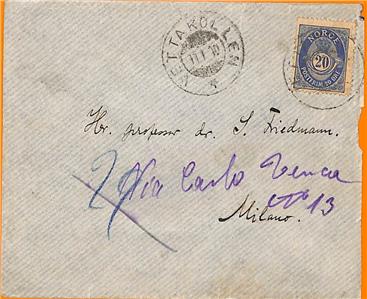 VETTAKOLLEN
11 I 10
NORGE
20
POSTFRIM. 20 ØRE
Hr. professor dr. S. Friedmann.
Via Carlo Tenca
No 13
Milano.